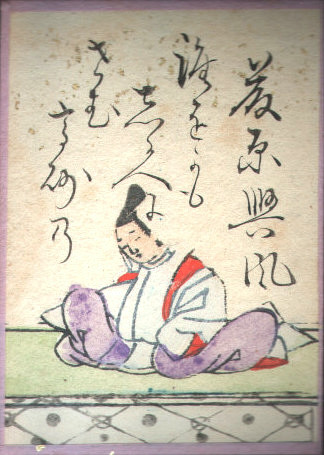 藤原興風
誰をかも
しる人に
せむ
高砂乃